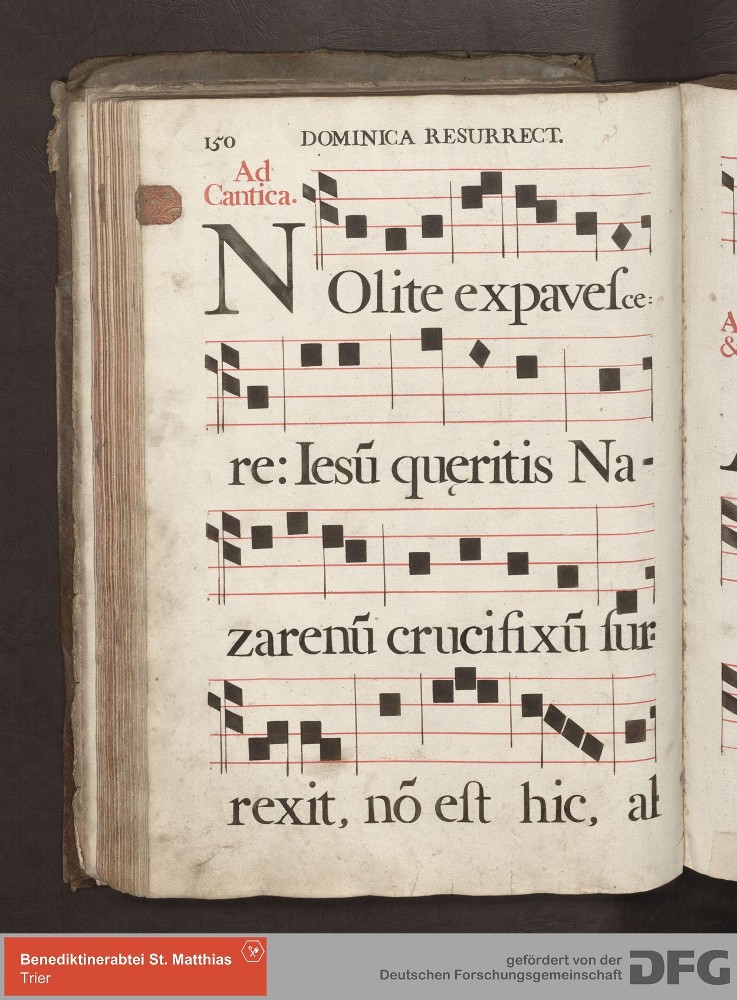 150 DOMINICA RESURRECT.
Ad
Cantica.
NOlite expaveſce:
re: Iesũ quęritis Na-
zarenũ crucifixũ ſur:
rexit, nõ eſt hic, al
Benediktinerabtei St. Matthias
Trier
gefördert von der
Deutschen Forschungsgemeinschaft DFG